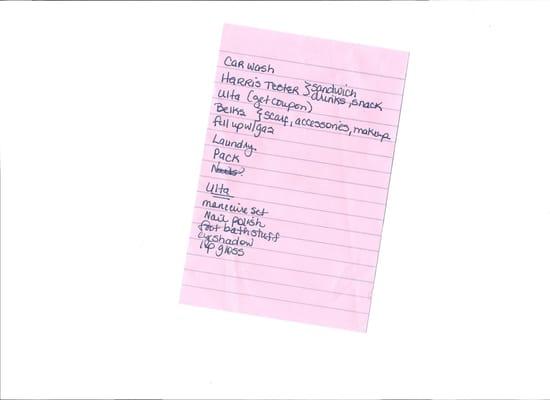 Car wash
HARRIS TEETER } sandwich
drinks, snack
Ulta (get coupon)
Belks } scarf, accessories, makeup
fill up w/gas
Laundry
Pack
Nails?
Ulta
manecure set
Nail polish
foot bath stuff
eyeshadow
lip gloss